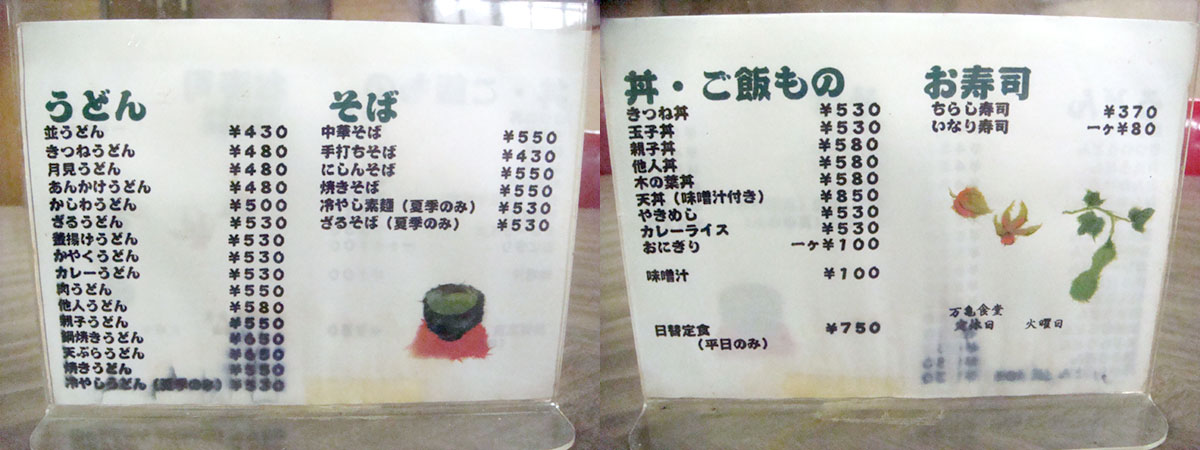 うどん
並うどん ¥430
きつねうどん ¥480
月見うどん ¥480
あんかけうどん ¥480
かしわうどん ¥500
ざるうどん ¥530
釜揚げうどん ¥530
かやくうどん ¥530
カレーうどん ¥530
肉うどん ¥550
他人うどん ¥580
親子うどん ¥550
鍋焼きうどん ¥650
天ぷらうどん ¥650
焼きうどん ¥550
冷やしうどん（夏季のみ） ¥530
そば
中華そば ¥550
手打ちそば ¥430
にしんそば ¥550
焼きそば ¥550
冷やし素麺（夏季のみ） ¥530
ざるそば（夏季のみ） ¥530
丼・ご飯もの
きつね丼 ¥530
玉子丼 ¥530
親子丼 ¥580
他人丼 ¥580
木の葉丼 ¥580
天丼（味噌汁付き） ¥850
やきめし ¥530
カレーライス ¥530
おにぎり 一ヶ¥100
味噌汁 ¥100
日替定食 ¥750
（平日のみ）
お寿司
ちらし寿司 ¥370
いなり寿司 一ヶ¥80
万亀食堂
定休日 火曜日